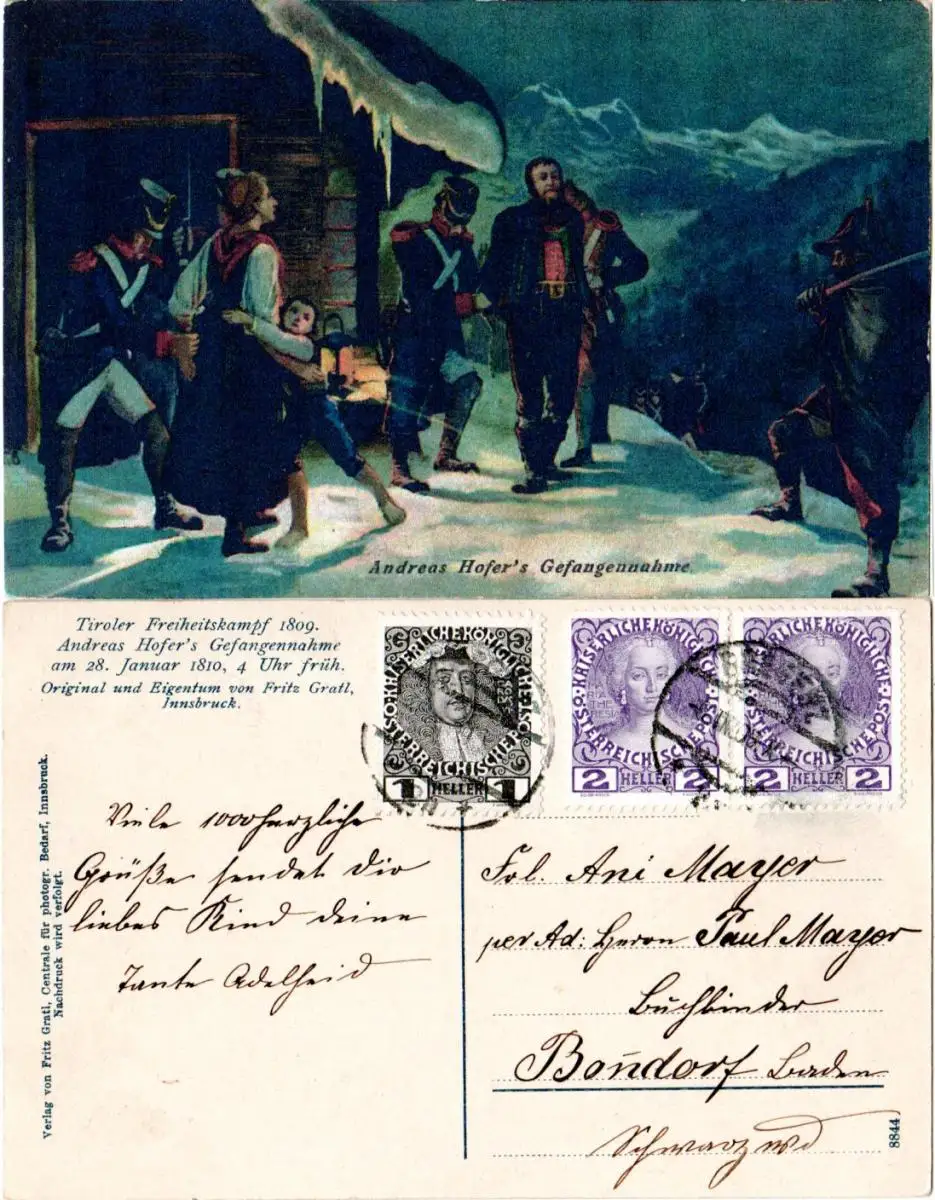 Andreas Hofer's Gefangennahme
Tiroler Freiheitskampf 1809.
Andreas Hofer's Gefangennahme
am 28. Januar 1810, 4 Uhr früh.
Original und Eigentum von Fritz Gratl,
Innsbruck.
KAISERLICHE KÖNIGLICHE ÖSTERREICHISCHE POST
1 HELLER 1
KAISERLICHE KÖNIGLICHE ÖSTERREICHISCHE POST
MARIA THERESIA
2 HELLER 2
KAISERLICHE KÖNIGLICHE ÖSTERREICHISCHE POST
2 HELLER 2
Verlag von Fritz Gratl, Centrale für photogr. Bedarf, Innsbruck.
Nachdruck wird verfolgt.
Viele 1000 herzliche
Grüße sendet Dir
liebes Kind deine
Tante Adelheid
Frl. Ani Mayer
per Ad: Herrn Paul Mayer
Buchbinder
Bondorf Baden
Schwarzwd
8844